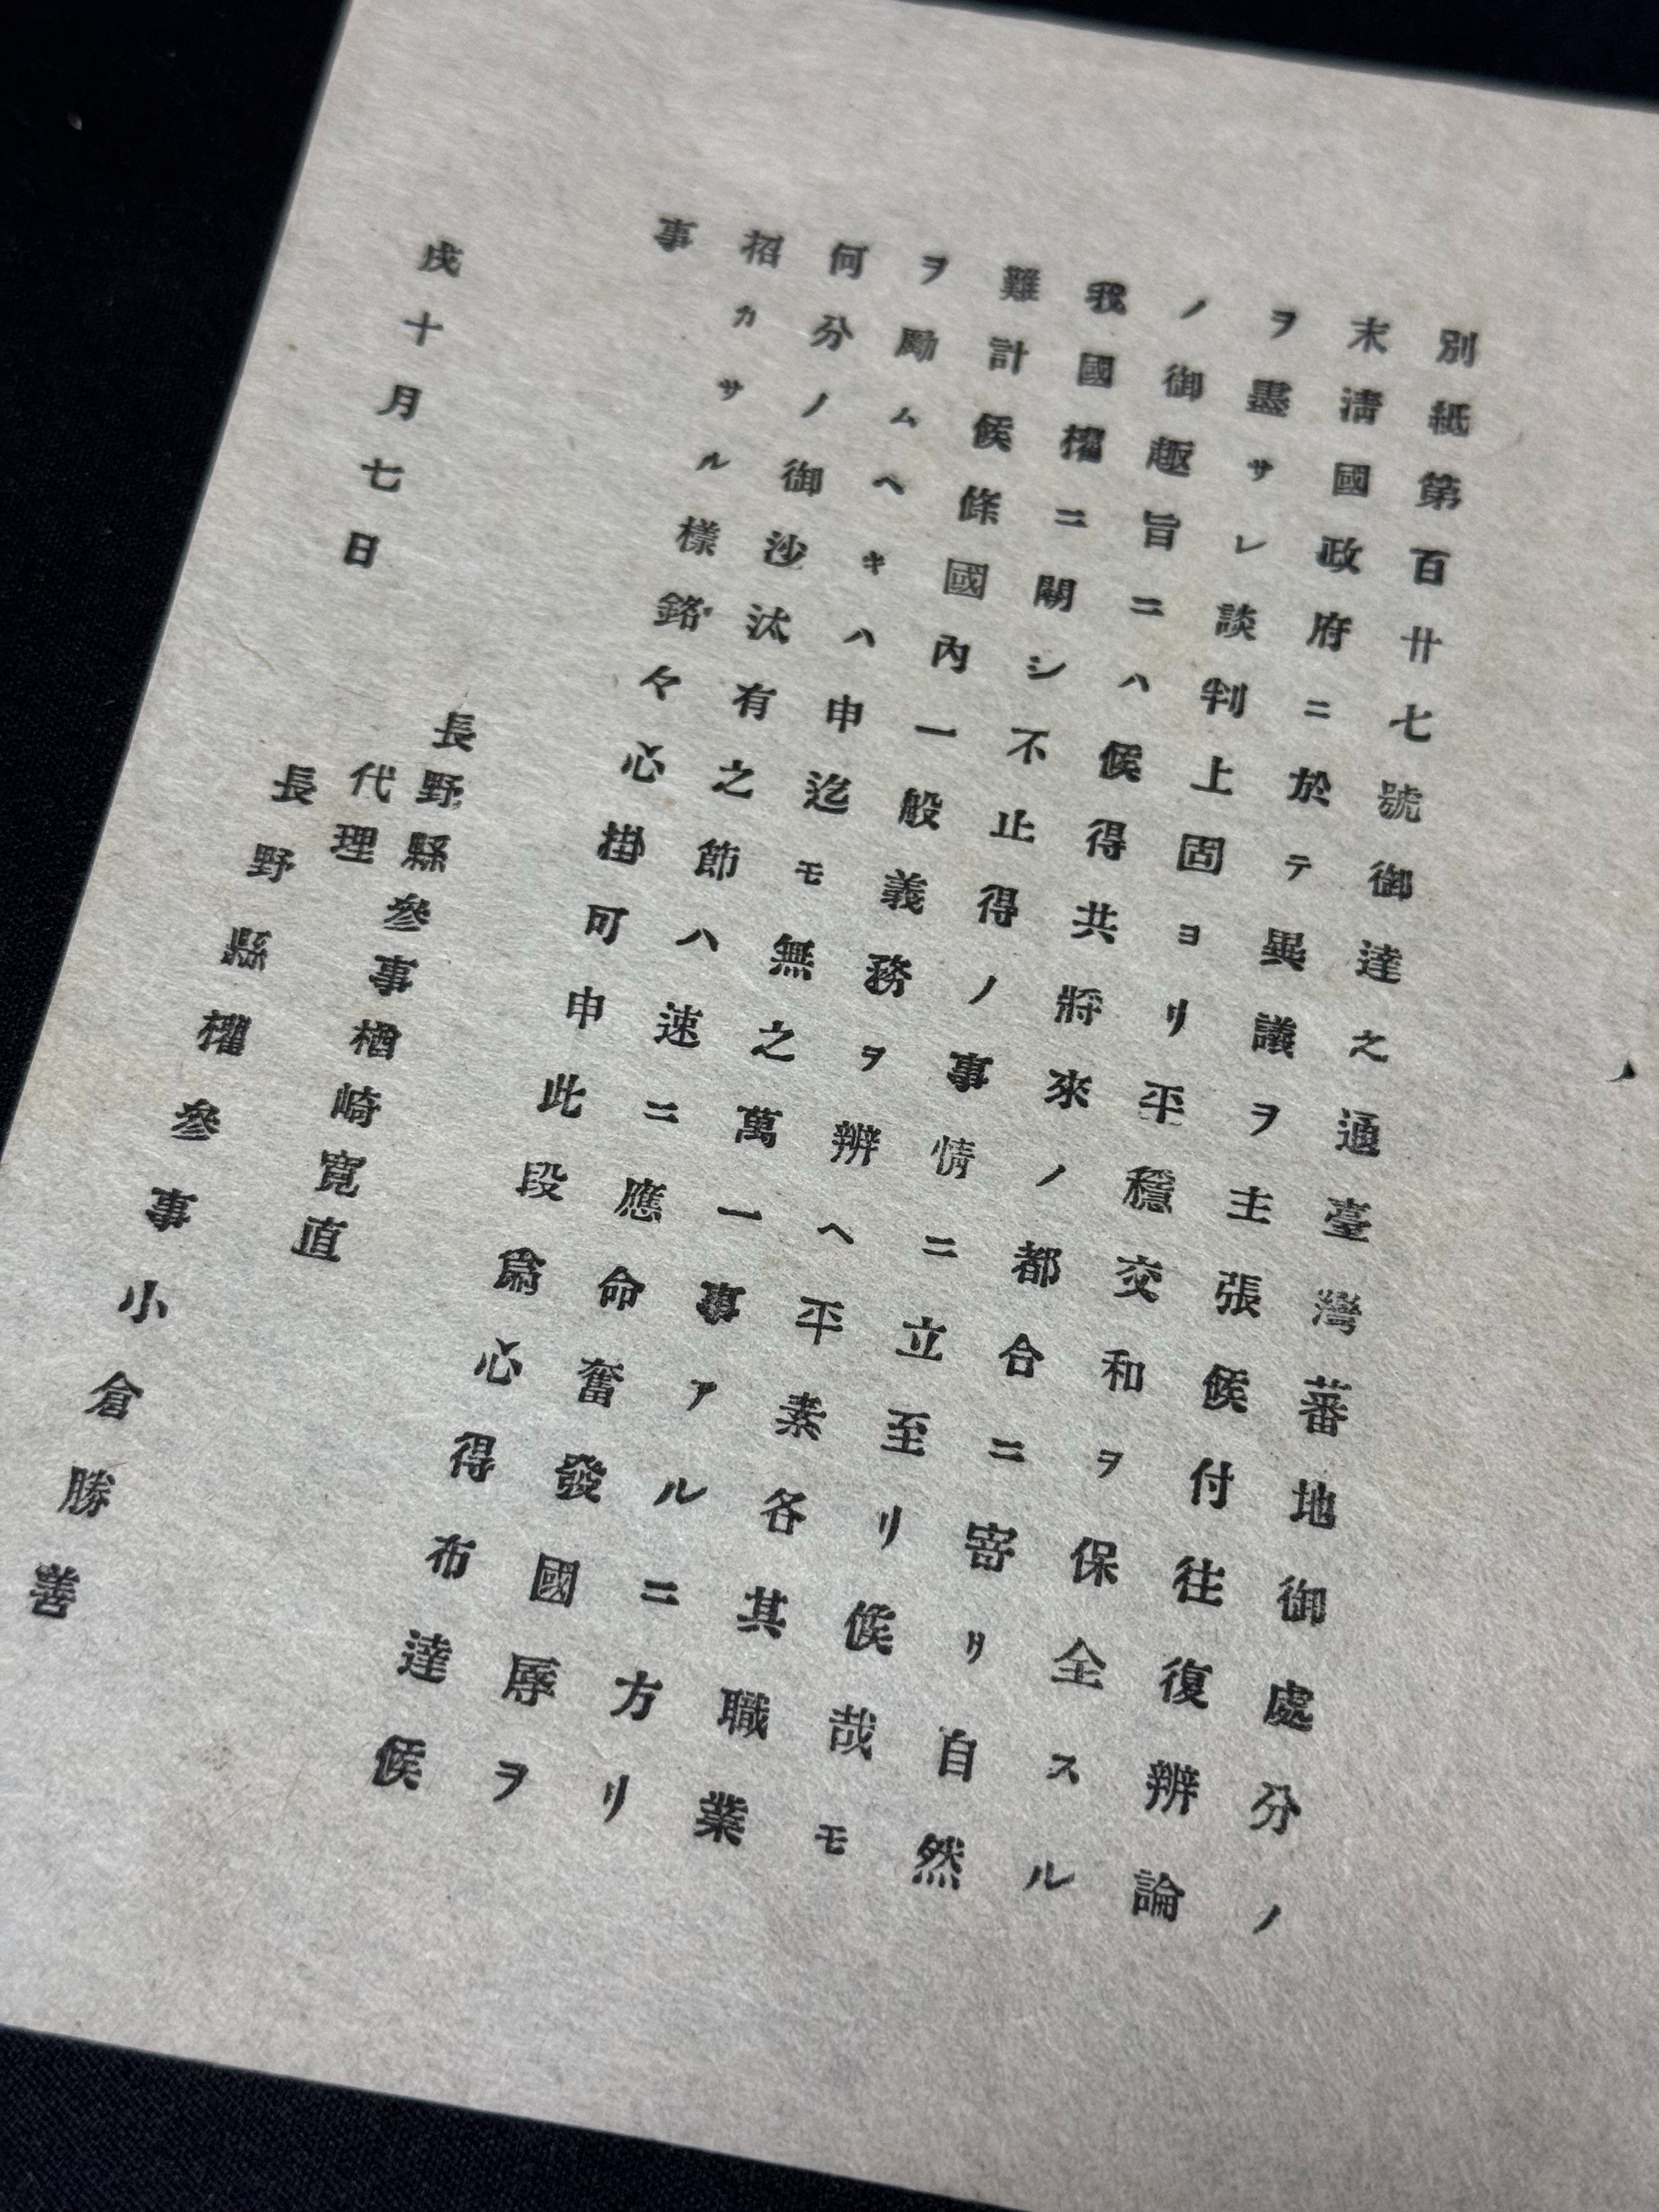 別紙第百廿七號御達之通臺灣蕃地御處分ノ
末淸國政府ニ於テ異議ヲ主張候付往復辨論
ヲ盡サレ談判上固ヨリ平穩交和ヲ保全スル
ノ御趣旨ニハ候得共將來ノ都合ニ寄リ自然
我國權ニ關シ不止得ノ事情ニ立至リ候哉モ
難計候條國內一般義務ヲ辨ヘ平素各其職業
ヲ勵ムヘキハ申迄モ無之萬一事アルニ方リ
何分ノ御沙汰有之節ハ速ニ應命奮發國辱ヲ
招カサル樣銘々心掛可申此段爲心得布達候
事
戌十月七日
長野縣參事楢崎寬直
代理
長野縣權參事小倉勝善